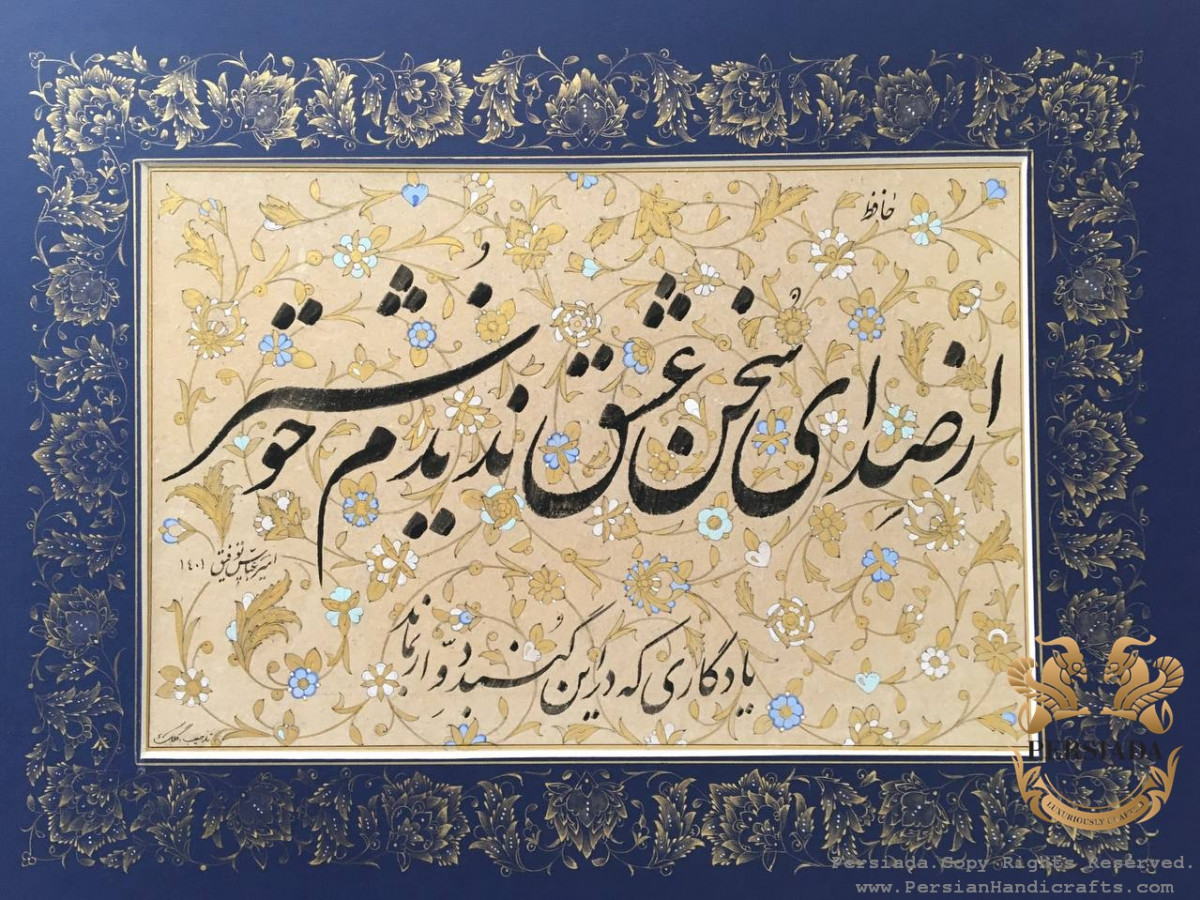 حافظ
از صدای سخن عشق ندیدم خوشتر
یادگاری که در این گنبد دوّار بماند
امیر عباس توفیق ۱۴۰۱
PERSIADA
LUXURIOUSLY CRAFTED
Persiada.Copy Rights Reserved.
www.PersianHandicrafts.com